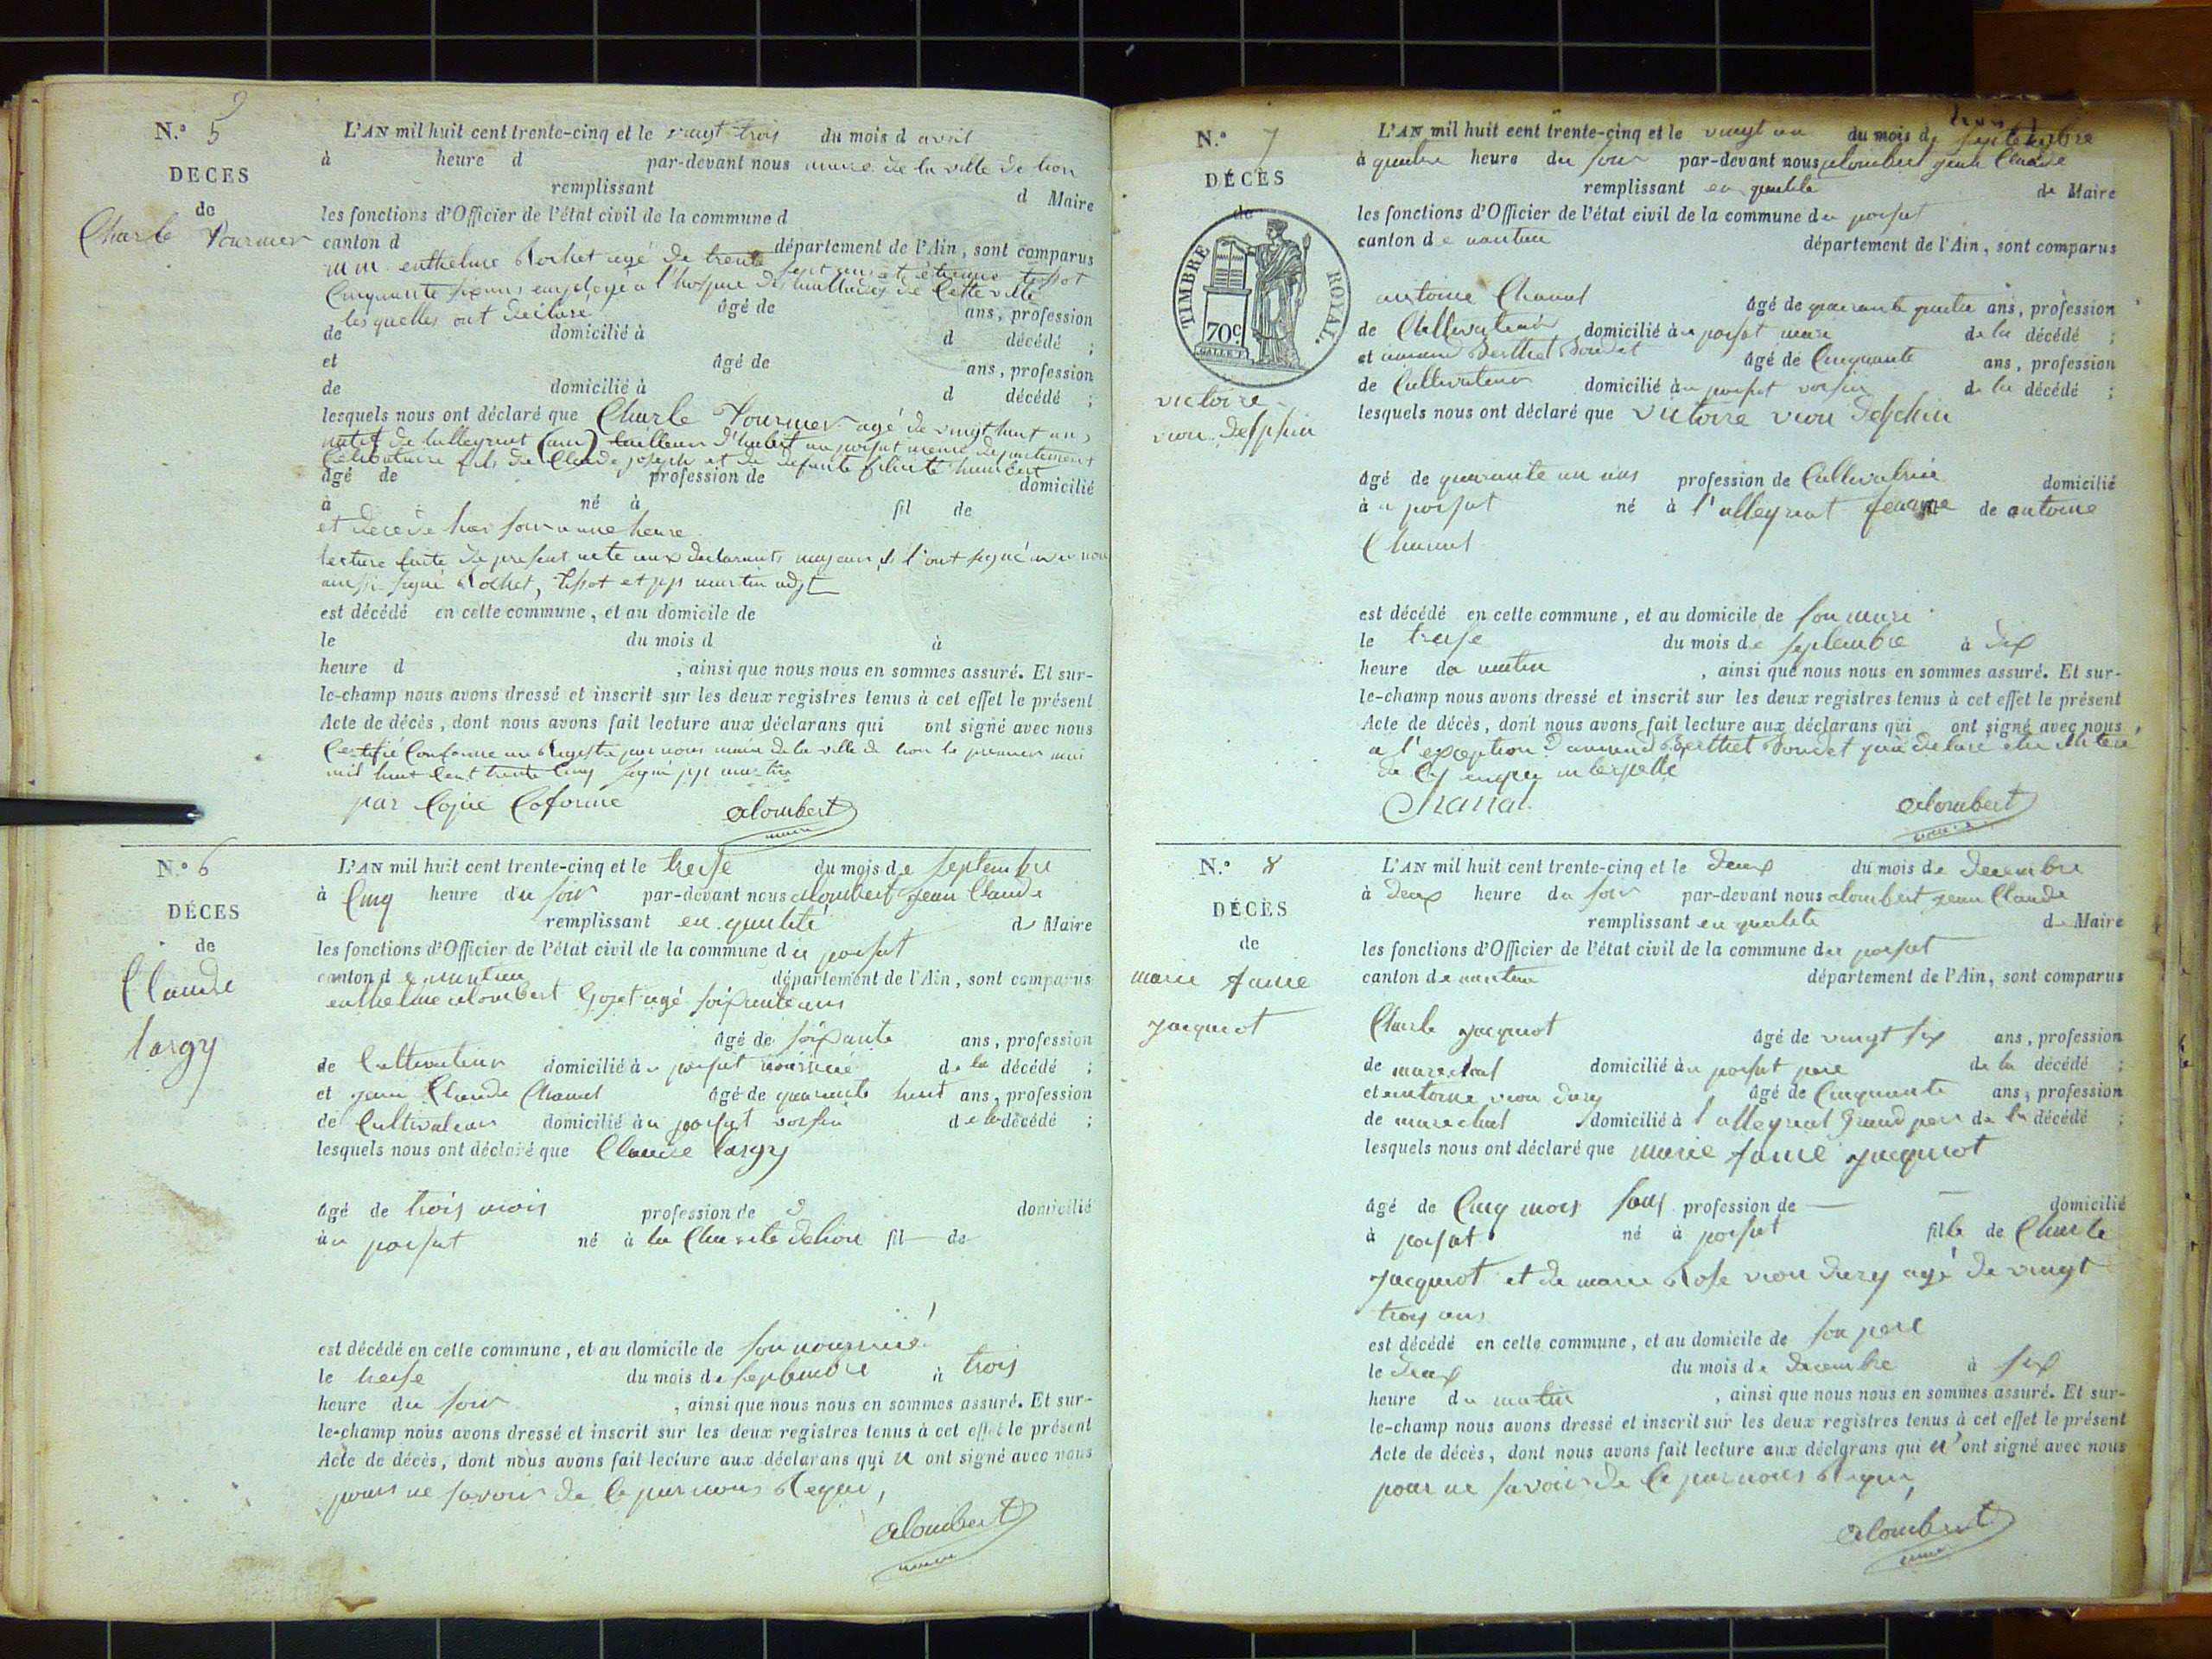 N.° 5
DECES
de
Charle Fournier
L'AN mil huit cent trente-cinq et le vingt trois du mois d avril
à heure d par-devant nous maire de la ville de lion
remplissant d Maire
les fonctions d'Officier de l'état civil de la commune d
canton d département de l'Ain, sont comparus
m m enthelme Rochet agé de trente sept ans et étienne tissot
Cinquante six ans employé a l'hospice des malades de Cette ville
lesquelles ont declaré âgé de ans, profession
de domicilié à d décédé ;
et âgé de ans, profession
de domicilié à d décédé ;
lesquels nous ont déclaré que Charle Fournier agé de vingt huit ans
natif de lalleyriat (ain) tailleur d'habit au poisat meme departement
Celibataire fils de Claude joseph et de defunte humbert
âgé de profession de domicilié
à né à fil de
et decede hier soir a une heure
lecture faite du present acte aux declarants majeurs, ils l'ont signé avec nous
ainsi signé Rochet, tissot et pp martin adjt
est décédé en cette commune, et au domicile de
le du mois d à
heure d , ainsi que nous nous en sommes assuré. Et sur-
le-champ nous avons dressé et inscrit sur les deux registres tenus à cet effet le présent
Acte de décès, dont nous avons fait lecture aux déclarans qui ont signé avec nous
Certifié Conforme au Registre par nous maire de la ville de lion le premier mai
mil huit Cent trente Cinq signé pp martin
par Copie Coforme alombert
maire
N.° 6
DÉCES
de
Claude
largy
L'AN mil huit cent trente-cinq et le treise du mois de septembre
à Cinq heure du soir par-devant nous alombert jean Claude
remplissant en qualité de Maire
les fonctions d'Officier de l'état civil de la commune du poisat
canton de nantua département de l'Ain, sont comparus
enthelme alombert Gozet agé soixante ans
âgé de soixante ans, profession
de Cultivateur domicilié àu poisat nourricié de la décédé ;
et jean Claude Chanal âgé de quarante huit ans, profession
de Cultivateur domicilié àu poisat voisin de la décédé ;
lesquels nous ont déclaré que Claude largy
âgé de trois mois profession de domicilié
àu poisat né à la Charité de lion fil de
est décédé en cette commune, et au domicile de son nourricié
le treise du mois de septembre à trois
heure du soir , ainsi que nous nous en sommes assuré. Et sur-
le-champ nous avons dressé et inscrit sur les deux registres tenus à cet effet le présent
Acte de décès, dont nous avons fait lecture aux déclarans qui n ont signé avec nous
pour ne savoir de Ce par nous Requi,
alombert
maire
N.° 7
DÉCÈS
de
TIMBRE ROYAL.
70c
victoire
vion delphin
L'AN mil huit cent trente-cinq et le vingt un du mois de septembre
à quatre heure du soir par-devant nous alombert jean Claude
remplissant en qualité de Maire
les fonctions d'Officier de l'état civil de la commune du poisat
canton de nantua département de l'Ain, sont comparus
antoine Chanal âgé de quarante quatre ans, profession
de Cultivateur domicilié àu poisat mari de la décédé ;
et amand Berthet Bondet âgé de Cinquante ans, profession
de Cultivateur domicilié àu poisat voisin de la décédé ;
lesquels nous ont déclaré que victoire vion delphin
âgé de quarante un ans profession de Cultivatrice domicilié
àu poisat né à l'alleyriat feamme de antoine
Chanal
est décédé en cette commune, et au domicile de son mari
le treise du mois de septembre à dix
heure du matin , ainsi que nous nous en sommes assuré. Et sur-
le-champ nous avons dressé et inscrit sur les deux registres tenus à cet effet le présent
Acte de décès, dont nous avons fait lecture aux déclarans qui ont signé avec nous,
a l'exception d'amand Berthet Bondet qui declare
interpellé
Chanal. alombert
maire
N.° 8
DÉCÈS
de
marie fanie
jacquiot
L'AN mil huit cent trente-cinq et le deux du mois de decembre
à deux heure du soir par-devant nous alombert jean Claude
remplissant en qualité de Maire
les fonctions d'Officier de l'état civil de la commune du poisat
canton de nantua département de l'Ain, sont comparus
Charle jacquiot âgé de vingt six ans, profession
de marechal domicilié àu poisat pere de la décédé ;
et antoine vion dury âgé de Cinquante ans, profession
de marechal domicilié à l'alleyriat grand pere de la décédé ;
lesquels nous ont déclaré que marie fanie jacquiot
âgé de Cinq mois profession de — domicilié
à poisat né à poisat fille de Charle
jacquiot et de marie Rose vion dury agé de vingt
trois ans
est décédé en cette commune, et au domicile de son pere
le deux du mois de decembre à six
heure du matin , ainsi que nous nous en sommes assuré. Et sur-
le-champ nous avons dressé et inscrit sur les deux registres tenus à cet effet le présent
Acte de décès, dont nous avons fait lecture aux déclarans qui n'ont signé avec nous
pour ne savoir de Ce par nous Requi,
alombert
maire